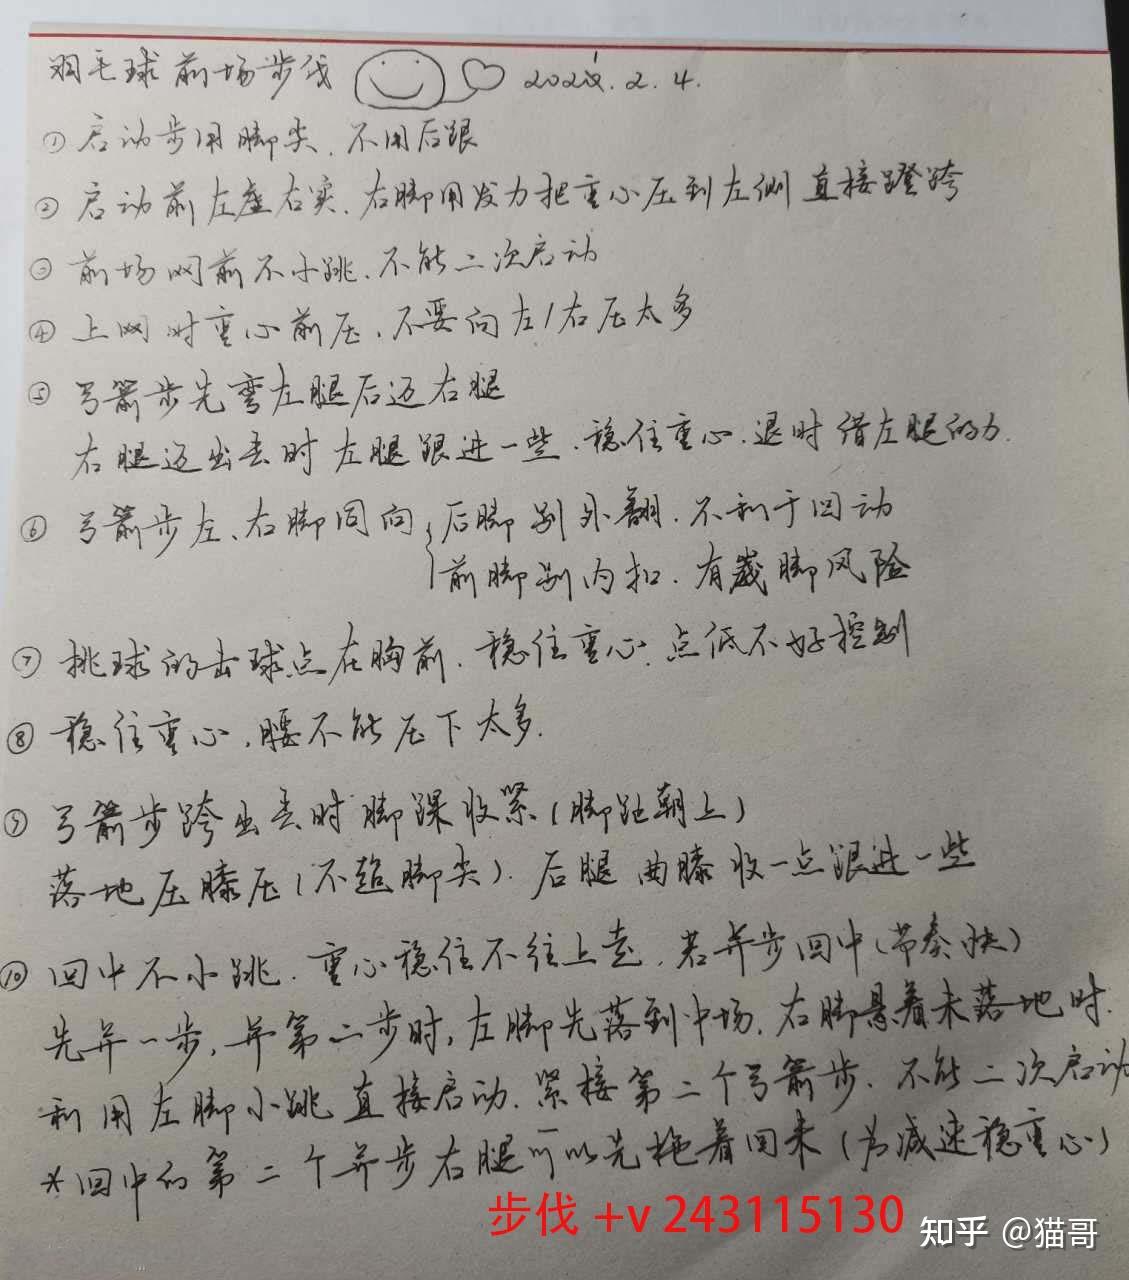 羽毛球前场步伐 2.4.
① 启动步用脚尖、不用后跟
② 启动前左虚右实、右脚用发力把重心压到左侧直接蹬跨
③ 前场网前不小跳、不能二次启动
④ 上网时重心前压、不要向左/右压太多
⑤ 弓箭步先弯左腿后迈右腿
右腿迈出去时左腿跟进一些、稳住重心、退时借左腿的力.
⑥ 弓箭步左、右脚同向 后脚别外翻、不利于回动
前脚别内扣、有崴脚风险
⑦ 挑球的击球点在胸前、稳住重心、点低不好控制
⑧ 稳住重心、腰不能压下太多.
⑨ 弓箭步跨出去时脚踝收紧(脚趾朝上)
落地压膝压(不超脚尖)、后腿曲膝收一点跟进一些
⑩ 回中不小跳、重心稳住不往上走、若并步回中(节奏快)
先并一步，并第二步时，左脚先落到中场、右脚悬着未落地时、
利用左脚小跳直接启动、紧接第二个弓箭步、不能二次启动
*回中的第二个并步右腿可以先拖着回来(为减速稳重心)
步伐 +v 243115130
知乎 @猫哥